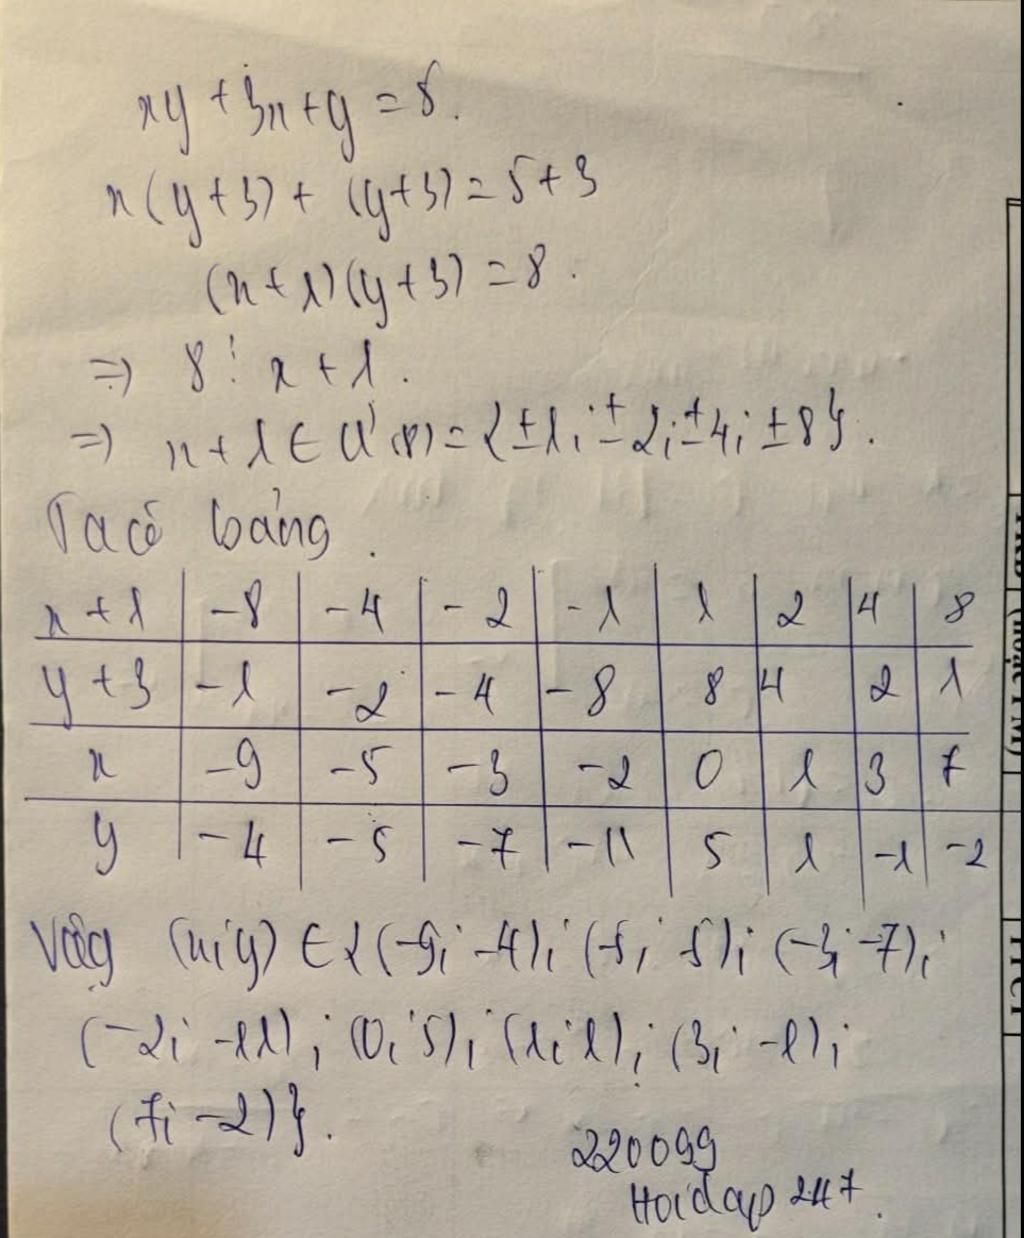 xy + 3x + y = 5.
x(y+3) + (y+3) = 5+3
(x+1)(y+3) = 8.
=> 8 ⋮ x+1.
=> x+1 ∈ Ư(8) = {±1; ±2; ±4; ±8}.
Ta có bảng.
x+1 -8 -4 -2 -1 1 2 4 8
y+3 -1 -2 -4 -8 8 4 2 1
x -9 -5 -3 -2 0 1 3 7
y -4 -5 -7 -11 5 1 -1 -2
Vậy (x;y) ∈ {(-9; -4); (-5; -5); (-3; -7);
(-2; -11); (0; 5); (1; 1); (3; -1);
(7; -2)}.
220099
Hoidap 247.